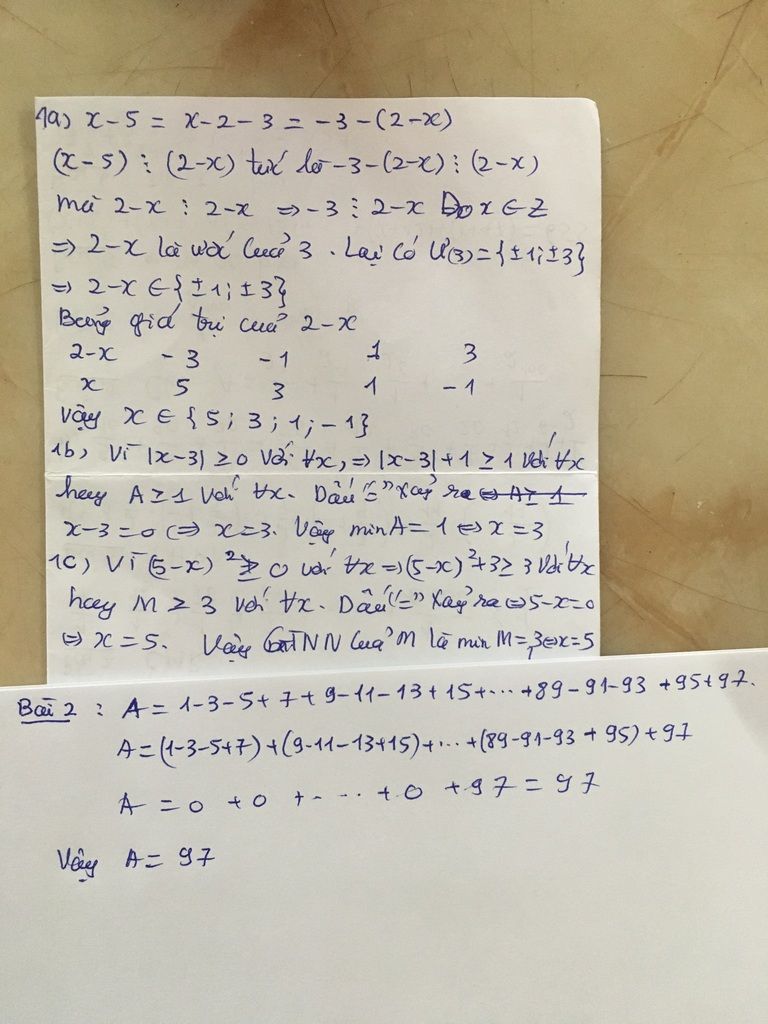 1a) x-5 = x-2-3 = -3-(2-x)
(x-5) ⋮ (2-x) tức là -3-(2-x) ⋮ (2-x)
mà 2-x ⋮ 2-x ⇒ -3 ⋮ 2-x Do x ∈ Z
⇒ 2-x là ước của 3. Lại có Ư(3)={±1;±3}
⇒ 2-x ∈ {±1; ±3}
Bảng giá trị của 2-x
2-x -3 -1 1 3
x 5 3 1 -1
Vậy x ∈ {5; 3; 1; -1}
1b) Vì |x-3| ≥ 0 với ∀x, ⇒ |x-3|+1 ≥ 1 với ∀x
hay A ≥ 1 với ∀x. Dấu "=" xảy ra ⇔ A ≥ 1
x-3=0 ⇔ x=3. Vậy min A = 1 ⇔ x = 3
1c) Vì (5-x)² ≥ 0 với ∀x ⇒ (5-x)²+3 ≥ 3 với ∀x
hay M ≥ 3 với ∀x. Dấu "=" xảy ra ⇔ 5-x=0
⇔ x = 5. Vậy GTNN của M là min M=3 ⇔ x=5
Bài 2 : A = 1-3-5+7+9-11-13+15+...+89-91-93+95+97.
A=(1-3-5+7)+(9-11-13+15)+...+(89-91-93+95)+97
A = 0 + 0 + ... + 0 + 97 = 97
Vậy A = 97